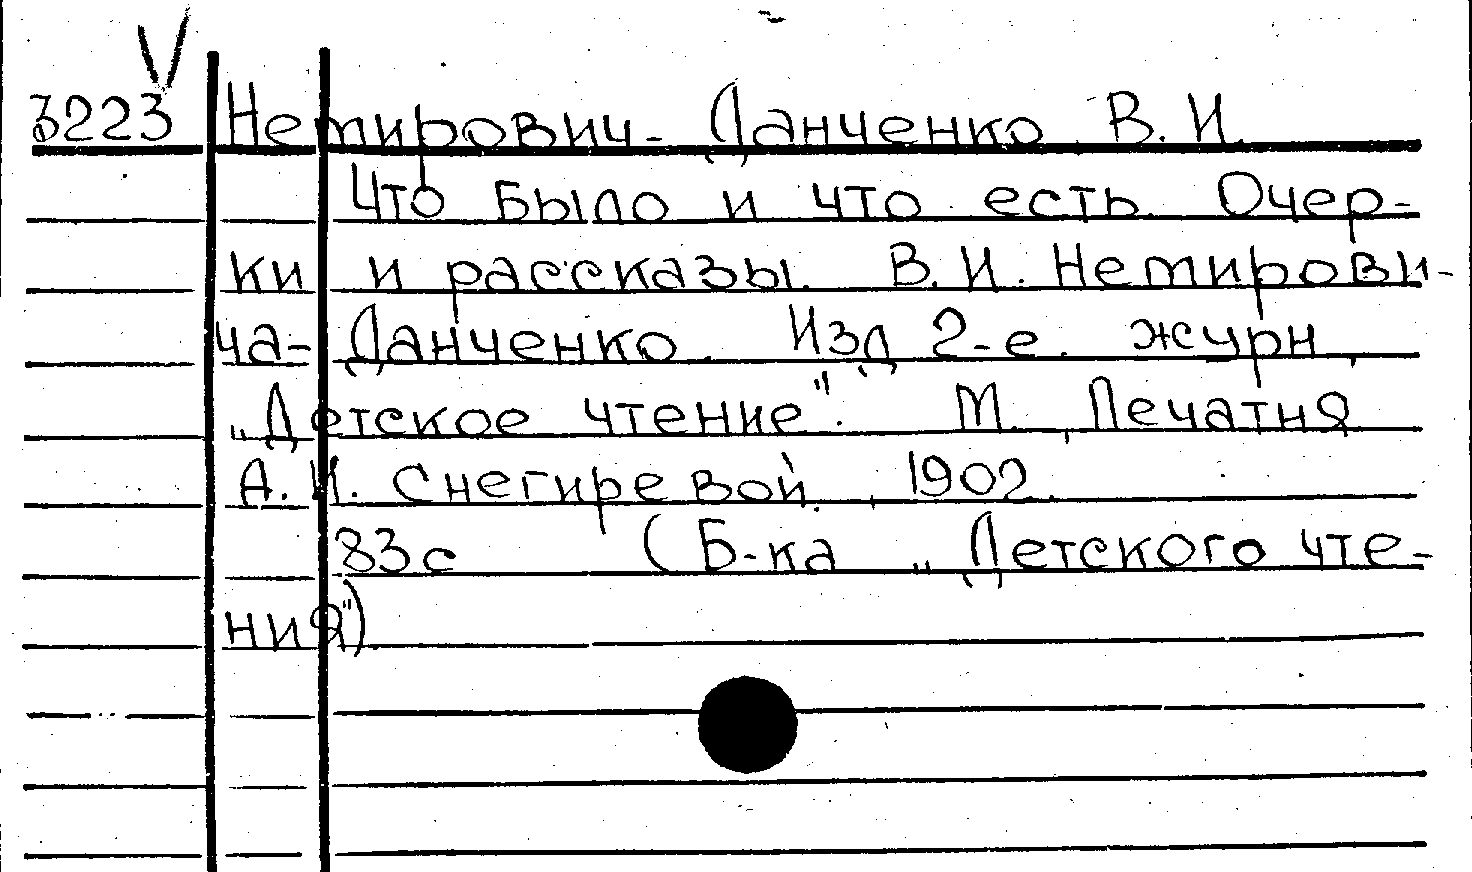 V
3223 Немирович-Данченко В.И.
Что было и что есть. Очер-
ки и рассказы. В.И. Немирови-
ча-Данченко. Изд 2-е. журн.
„Детское чтение". М., Печатня
А.И. Снегиревой, 1902.
83с (Б-ка „Детского чте-
ния")